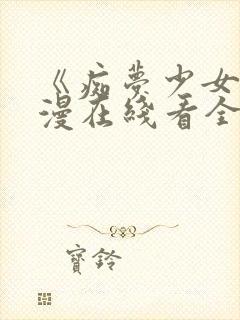 《痴梦少女
漫在线看全
寶鈴